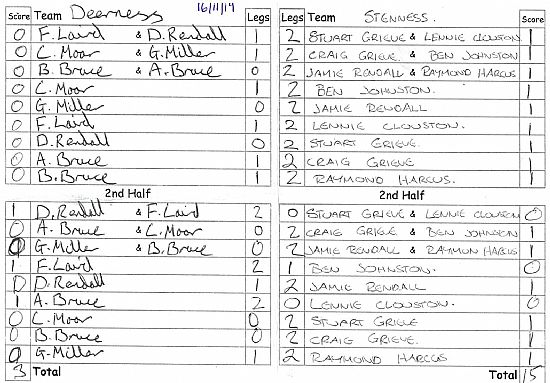 Score Team Deerness 16/11/19 Legs Legs Team STENNESS. Score
0 F. Laird & D. Rendall 1 2 STUART GRIEVE & LENNIE CLOUSTON 1
0 C. Moar & G. Miller 1 2 CRAIG GRIEVE & BEN JOHNSTON 1
0 B. Bruce & A. Bruce 0 2 JAMIE RENDALL & RAYMOND HARCUS 1
0 C. Moar 1 2 BEN JOHNSTON. 1
0 G. Miller 0 2 JAMIE RENDALL 1
0 F. Laird 1 2 LENNIE CLOUSTON. 1
0 D. Rendall 0 2 STUART GRIEVE. 1
0 A. Bruce 1 2 CRAIG GRIEVE 1
0 B. Bruce 1 2 RAYMOND HARCUS. 1
2nd Half 2nd Half
1 D. Rendall & F. Laird 2 0 STUART GRIEVE & LENNIE CLOUSTON 0
0 A. Bruce & C. Moar 0 2 CRAIG GRIEVE & BEN JOHNSTON 1
0 G. Miller & B. Bruce 0 2 JAMIE RENDALL & RAYMON HARCUS 1
1 F. Laird 2 1 BEN JOHNSTON. 0
0 D. Rendall 1 2 JAMIE RENDALL 1
1 A. Bruce 2 0 LENNIE CLOUSTON. 0
0 C. Moar 0 2 STUART GRIEVE 1
0 B. Bruce 0 2 CRAIG GRIEVE. 1
0 G. Miller 1 2 RAYMOND HARCUS 1
3 Total Total 15